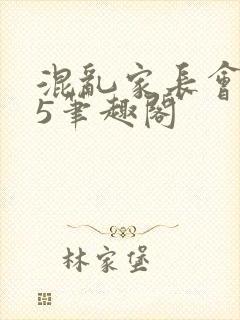 混亂家長會
5筆趣閣
林家堡